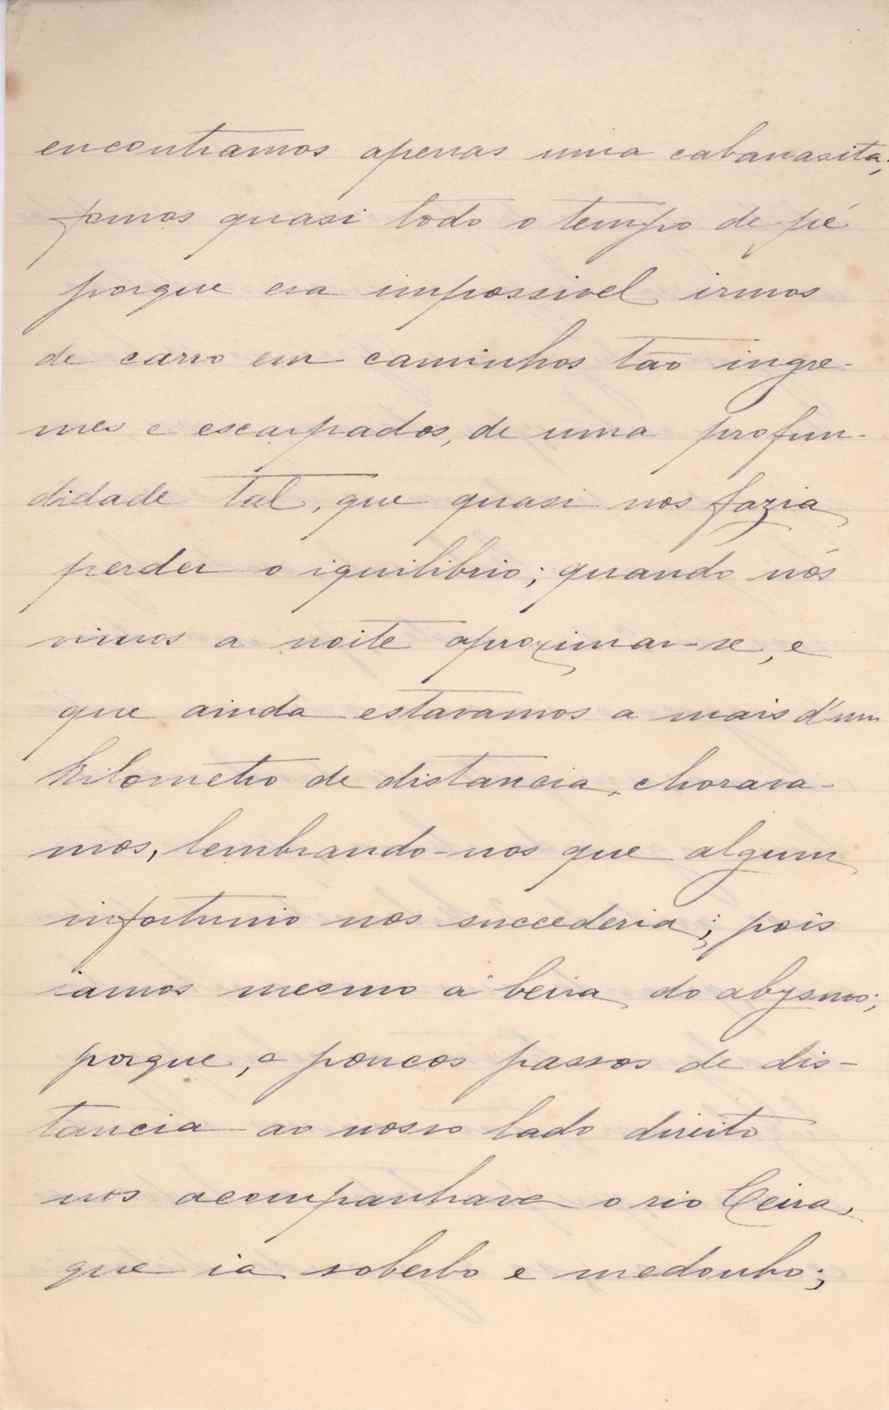 encontramos apenas uma cabanasita;
fomos quasi todo o tempo de pé
porque era impossivel irmos
de carro em caminhos tão ingre-
mes e escarpados, de uma profun-
didade tal, que quasi nos fazia
perder o iquilibrio; quando nós
vimos a noite aproximar-se, e
que ainda estavamos a mais d'um
kilometro de distancia, chorava-
mos, lembrando-nos que algum
infortunio nos succederia; pois
iamos mesmo á beira do abysmo;
porque, a poucos passos de dis-
tancia ao nosso lado direito
nos acompanhava o rio Ceira,
que ia soberbo e medonho;